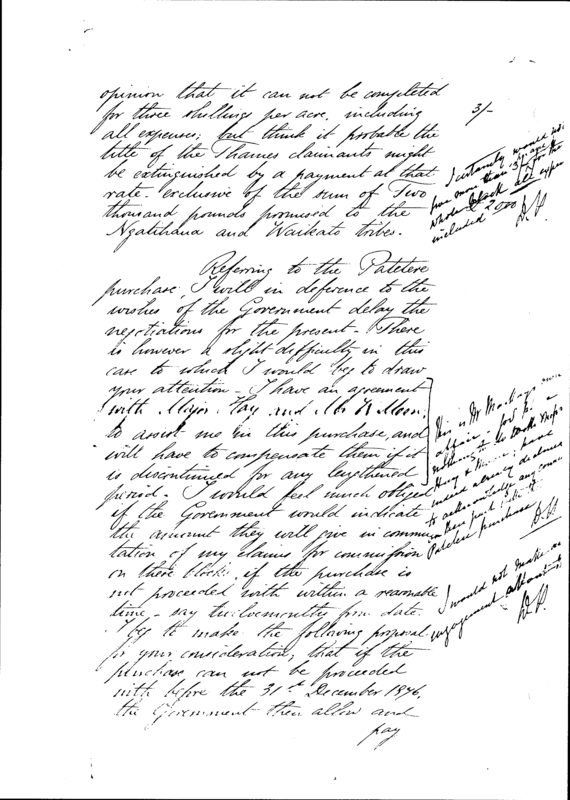 opinion that it can not be completed
for three shillings per acre, including
all expenses; but think it probable the
title of the Thames claimants might
be extinguished by a payment at that
rate. exclusive of the sum of Two
thousand pounds promised to the
Ngatihaua and Waikato tribes.
3/-
I certainly would not
give more than 3/- per acre for the
whole block all
included 2000
Referring to the Patetere
purchase, I will in deference to the
wishes of the Government delay the
negotiations for the present. There
is however a slight difficulty in this
case to which I would beg to draw
your attention. I have an agreement
with Major Hay and Mr W Moon,
to assist me in this purchase, and
will have to compensate them if it
is discontinued for any lengthened
period. I would feel much obliged
if the Government would indicate
the amount they will give in commu
tation of my claims for commission
on these blocks, if the purchase is
not proceeded with within a reasonable
time, say twelvemonths from date.
I beg to make the following proposal
for your consideration, that if the
purchase can not be proceeded
with before the 31st December 1876,
the Government then allow and
pay
This is Mr
affair. Govt
nothing to do with
Hay &
indeed already declined
to acknowledge any
in
Patetere purchase
I would not make
engagement